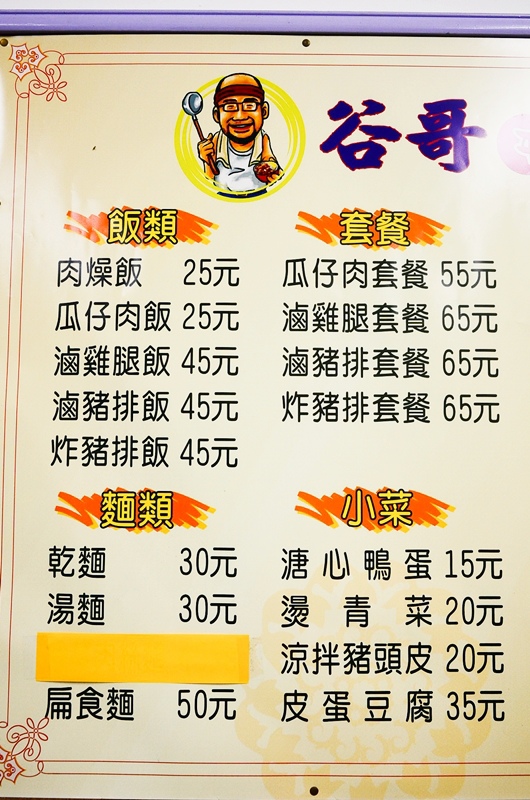 谷哥
飯類
肉燥飯 25元
瓜仔肉飯 25元
滷雞腿飯 45元
滷豬排飯 45元
炸豬排飯 45元
套餐
瓜仔肉套餐 55元
滷雞腿套餐 65元
滷豬排套餐 65元
炸豬排套餐 65元
麵類
乾麵 30元
湯麵 30元
扁食麵 50元
小菜
溏心鴨蛋 15元
燙青菜 20元
涼拌豬頭皮 20元
皮蛋豆腐 35元